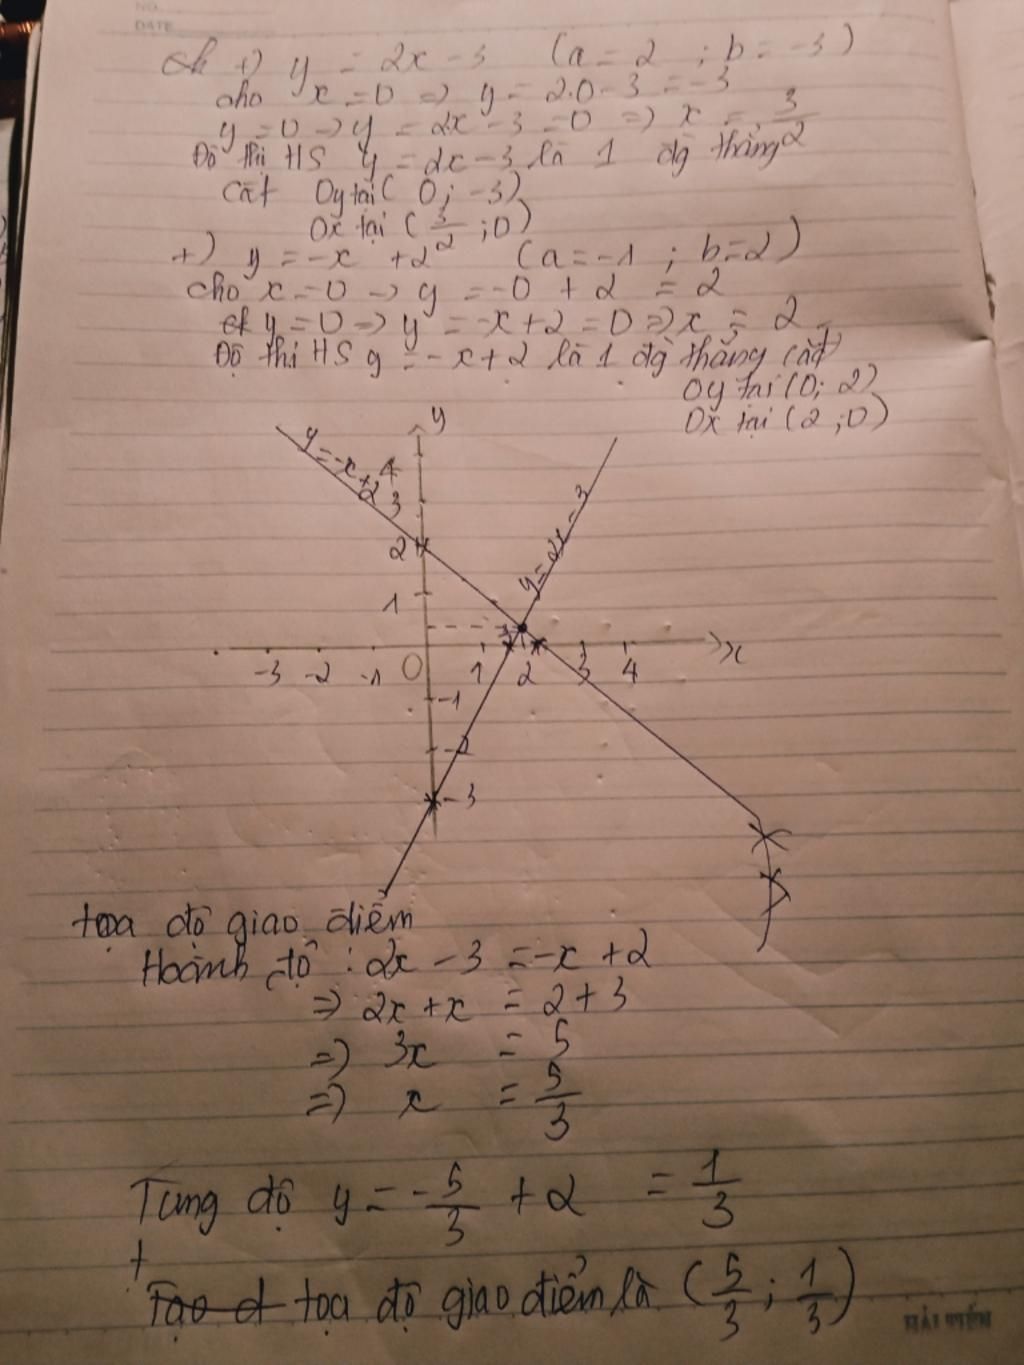 NO.
DATE
+) y = 2x - 3 (a = 2 ; b = -3)
cho x = 0 => y = 2.0 - 3 = -3
y = 0 -> y = 2x - 3 = 0 => x = 3/2
Đồ thị HS y = 2x - 3 là 1 đg thẳng
cắt Oy tại (0; -3)
Ox tại (3/2; 0)
+) y = -x + 2 (a = -1 ; b = 2)
cho x = 0 -> y = -0 + 2 = 2
y = 0 => y = -x + 2 = 0 => x = 2
Đồ thị HS y = -x + 2 là 1 đg thẳng cắt
Oy tại (0; 2)
Ox tại (2; 0)
y
y = -x + 2
4
3
y = 2x - 3
2
1
x
-3 -2 -1 0 1 2 3 4
-1
-2
-3
tọa độ giao điểm
Hoành độ : 2x - 3 = -x + 2
=> 2x + x = 2 + 3
=> 3x = 5
=> x = 5/3
Tung độ y = -5/3 + 2 = 1/3
+
Tạo đ tọa độ giao điểm là (5/3 ; 1/3)
HẢI TIẾN